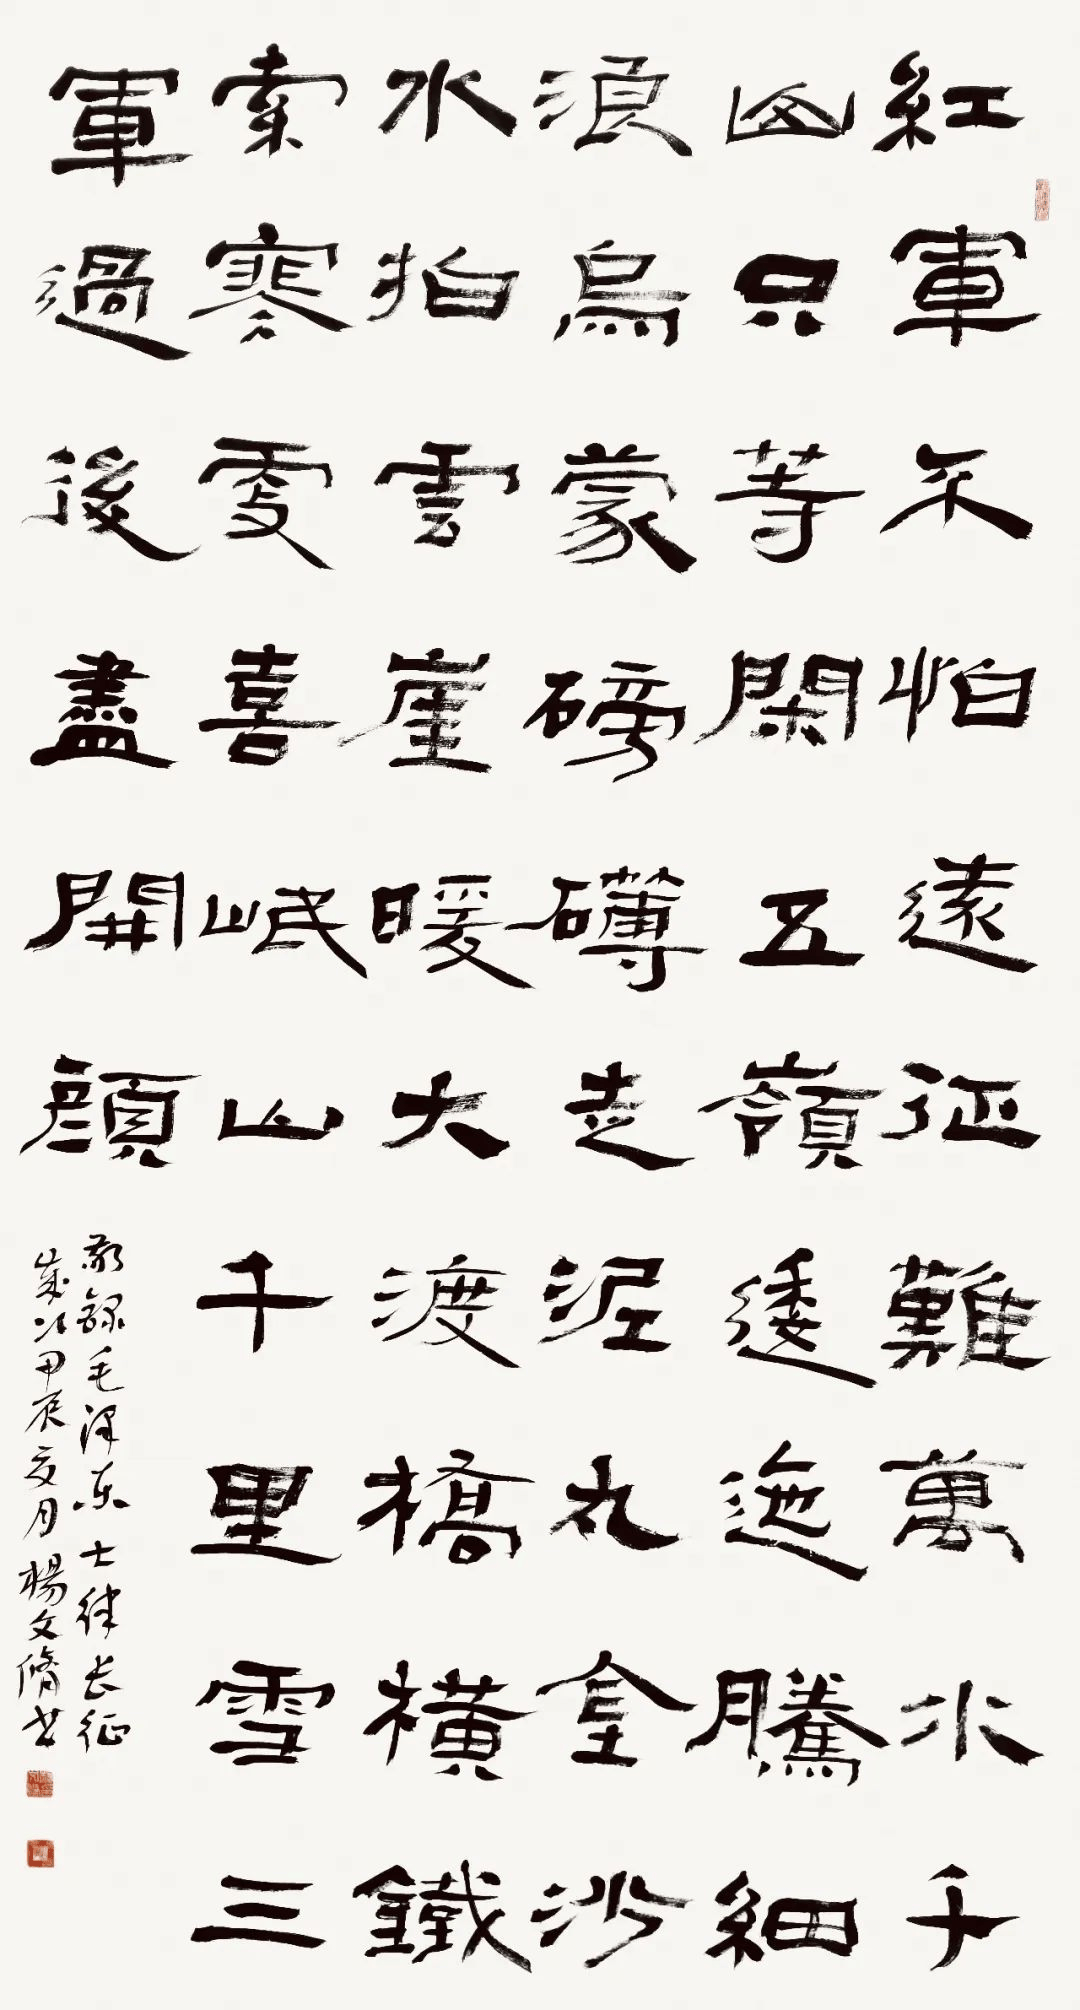 紅軍不怕遠征難萬水千
山只等閑五嶺逶迤騰細
浪烏蒙磅礴走泥丸金沙
水拍雲崖暖大渡橋橫鐵
索寒更喜岷山千里雪三
軍過後盡開顏
敬錄毛泽东七律长征
歲次甲辰夏月楊文脩书